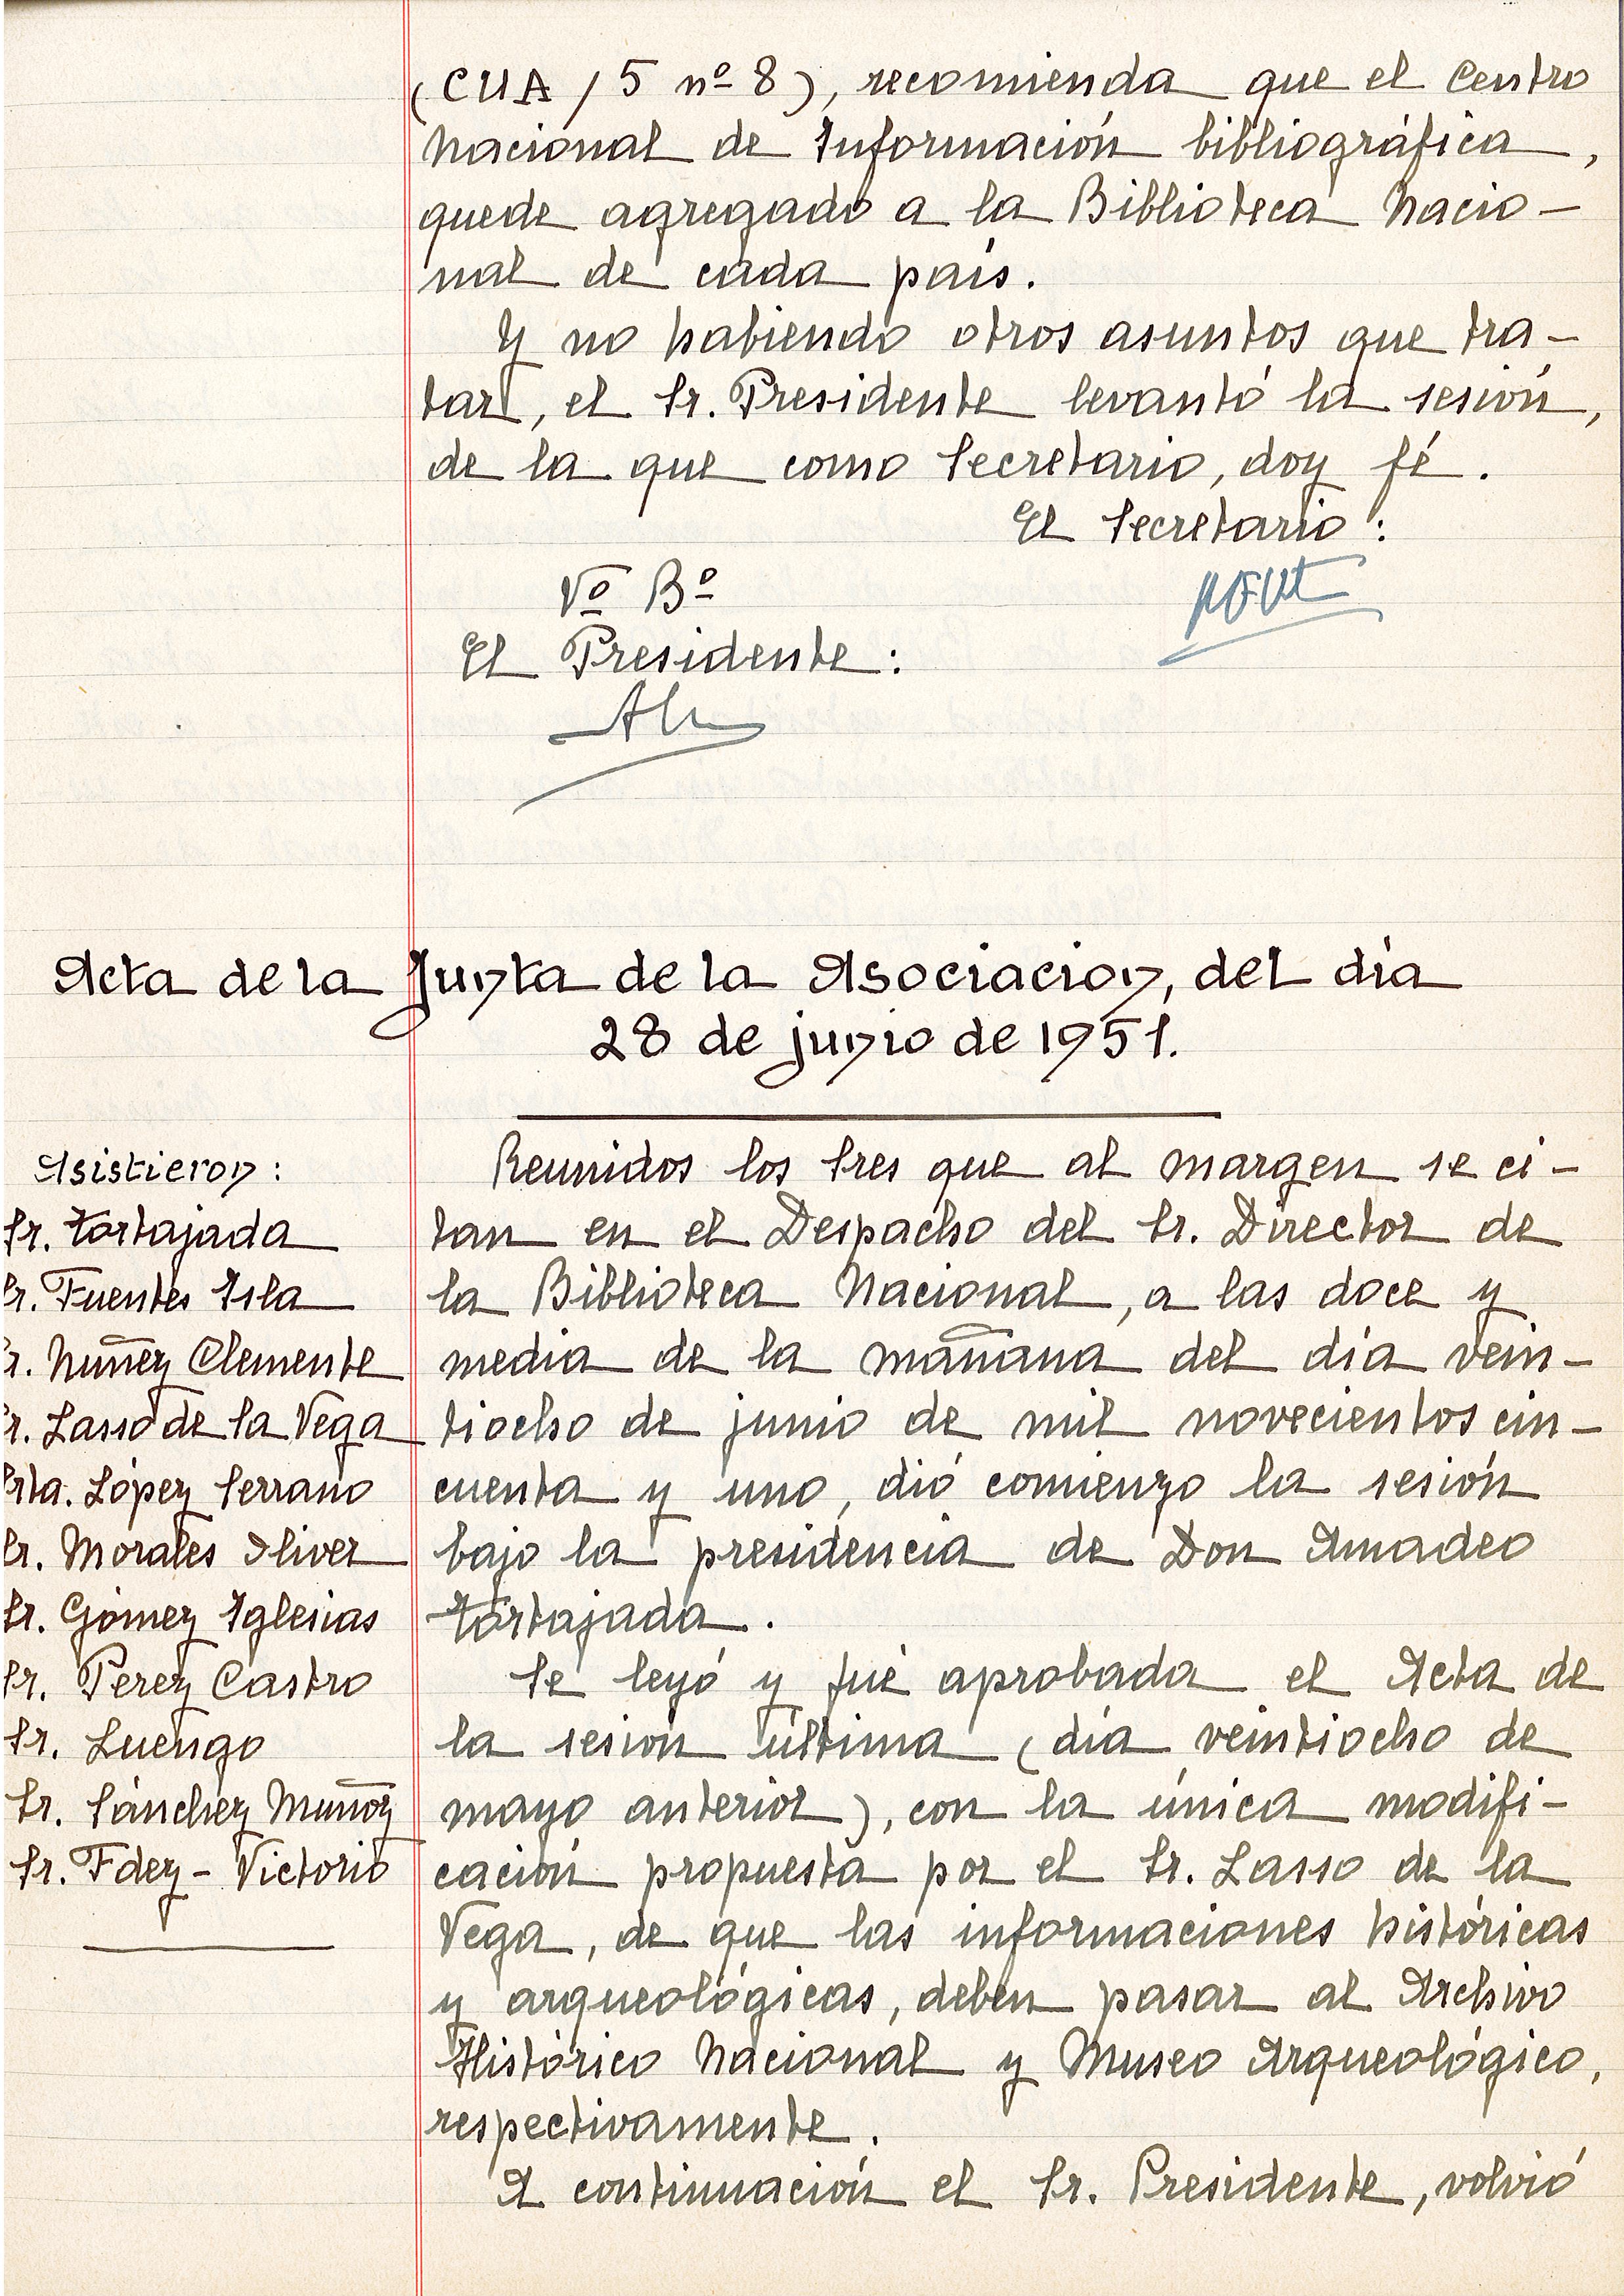 (CUA / 5 nº 8), recomienda que el Centro
Nacional de Información bibliográfica,
quede agregado a la Biblioteca Nacio-
nal de cada país.
Y no habiendo otros asuntos que tra-
tar, el Sr. Presidente levantó la sesión,
de la que como Secretario, doy fé.
El Secretario:
Vº Bº
El Presidente:
Acta de la Junta de la Asociacion, del día
28 de junio de 1951.
Asistieron:
Sr. Tortajada
Sr. Fuentes Isla
Sr. Núñez Clemente
Sr. Lasso de la Vega
Srta. López Serrano
Sr. Morales Oliver
Sr. Gómez Iglesias
Sr. Perez Castro
Sr. Luengo
Sr. Sánchez Muñoz
Sr. Fdez-Victorio
Reunidos los Sres que al margen se ci-
tan en el Despacho del Sr. Director de
la Biblioteca Nacional, a las doce y
media de la mañana del día vein-
tiocho de junio de mil novecientos cin-
cuenta y uno, dió comienzo la sesión
bajo la presidencia de Don Amadeo
Tortajada.
Se leyó y fué aprobada el Acta de
la sesión última (día veintiocho de
mayo anterior), con la única modifi-
cación propuesta por el Sr. Lasso de la
Vega, de que las informaciones históricas
y arqueológicas, deben pasar al Archivo
Histórico Nacional y Museo Arqueológico,
respectivamente.
A continuación el Sr. Presidente, volvió